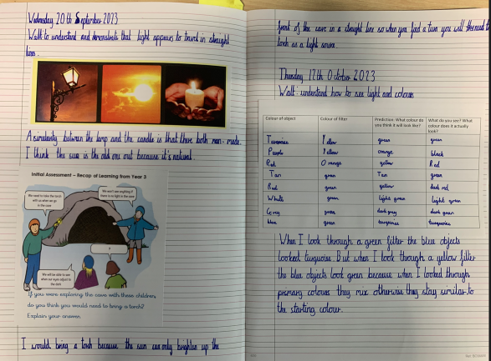 Wednesday 20th September 2023
Walt: to understand and demonstrate that light appears to travel in straight
lines.
A similarity between the lamp and the candle is that there both man-made.
I think the sun is the odd one out because it's natural.
Initial Assessment – Recap of Learning from Year 3
If you were exploring the cave with these children,
do you think you would need to bring a torch?
Explain your answer.
I would bring a torch because the sun can only brighten up the
front of the cave in a straight line so when you find a turn you will the need
torch as a light source.
Thursday 12th October 2023
Walt: understand how to see light and colour.
Colour of object	Colour of filter	Prediction: What colour do you think it will look like?	What do you see? What colour does it actually look?
Yellow	green	green
Purple	Yellow	orange	black
Red	Orange	yellow	Red
Tan	green	Tan	green
Red	green	yellow	dark red
White	green	light green	light green
Grey	green	dark grey	dark green
blue	green	turquoise	turquoise
When I look through a green filter the blue objects
looked turquoise but when I look through a yellow filter
the blue objects look green because when I looked through
primary colours they mix otherwise they stay similar to
the starting colour.